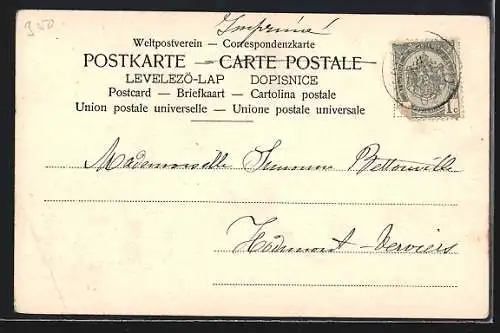 350
Imprimé
Weltpostverein – Correspondenzkarte
POSTKARTE — CARTE POSTALE
LEVELEZÖ-LAP DOPISNICE
Postcard — Briefkaart — Cartolina postale
Union postale universelle – Unione postale universale
1c
Mademoiselle Bettonville
Hodimont-Verviers